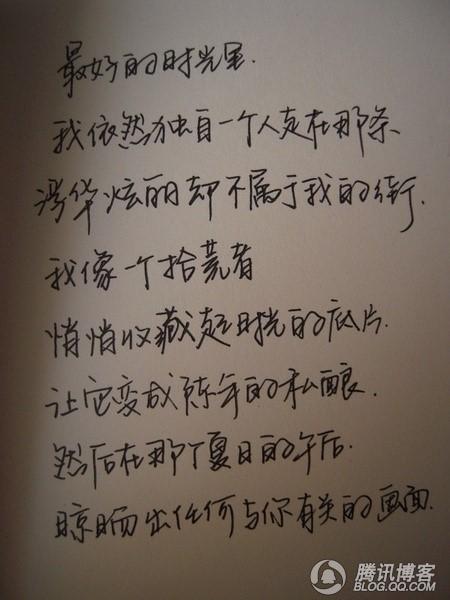 最好的时光里.
我依然独自一个人走在那条、
浮华炫丽却不属于我的街.
我像一个拾荒者
悄悄收藏起时光的底片.
让它变成陈年的私酿.
然后在那个夏日的午后.
晾晒出任何与你有关的画面.
腾讯博客
BLOG.QQ.COM